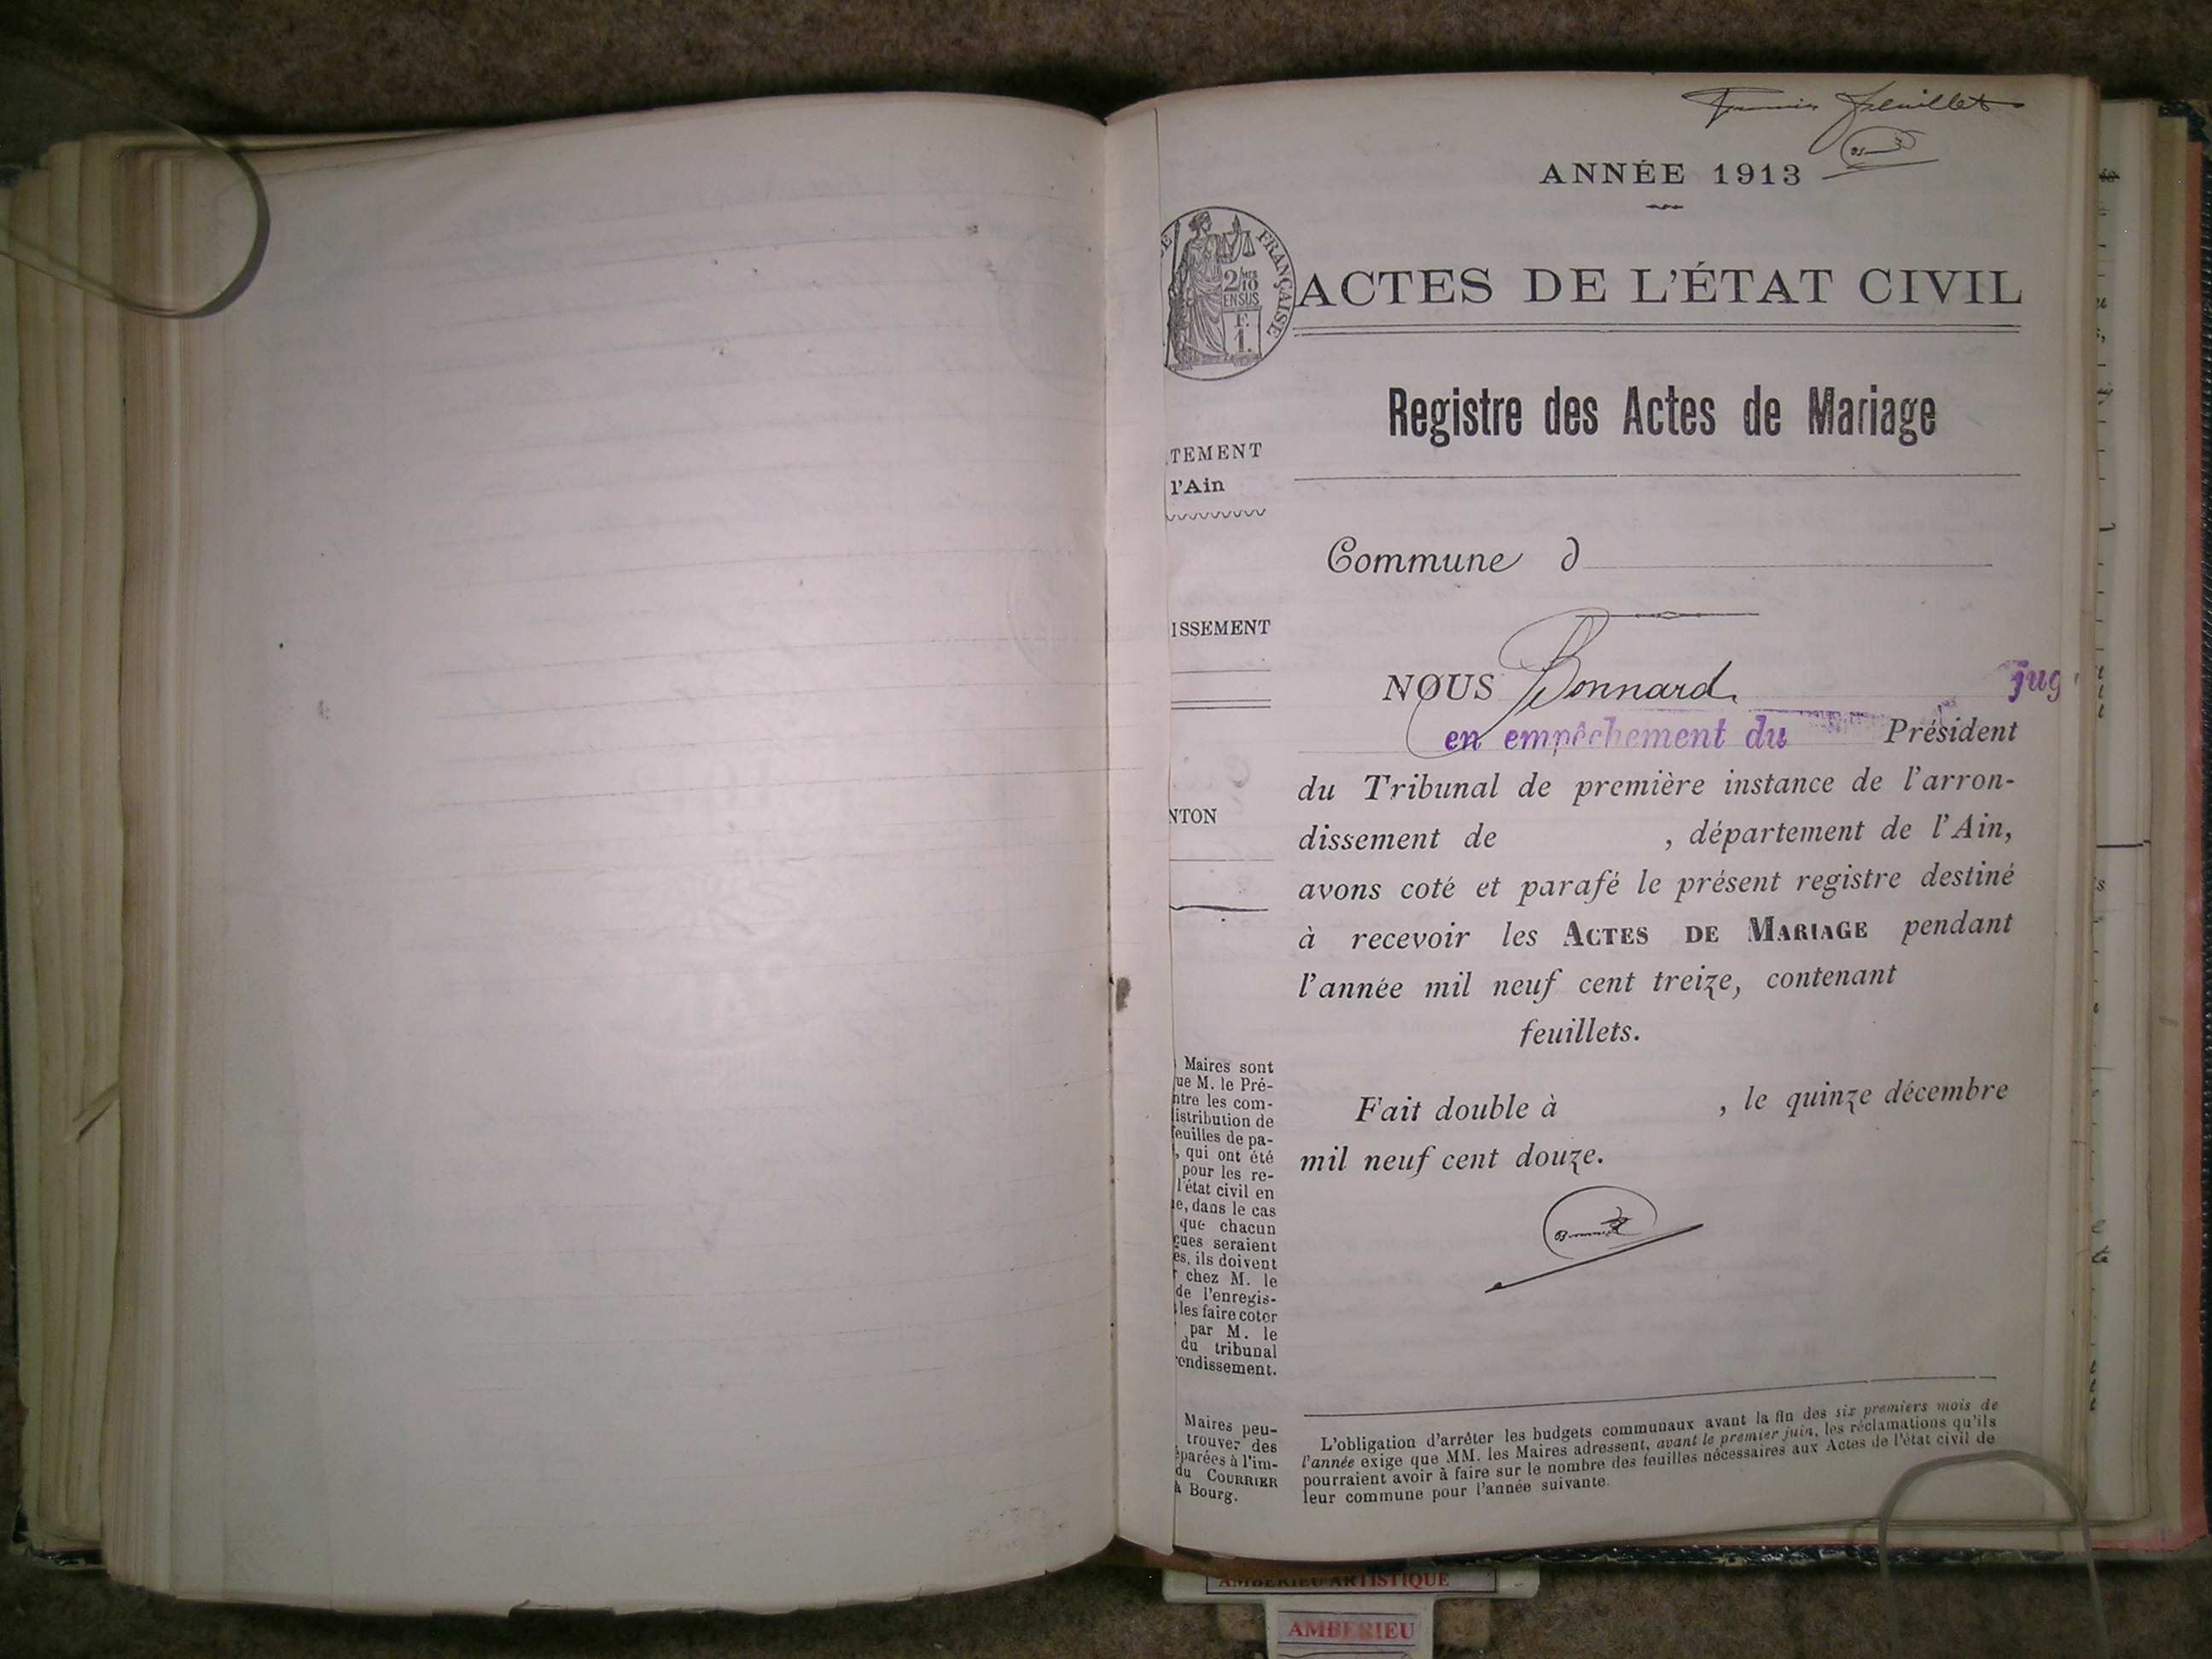 Premier feuillet
ANNÉE 1913
FRANÇAISE
2/10
EN SUS
F.
1.
ACTES DE L'ÉTAT CIVIL
Registre des Actes de Mariage
TEMENT
l'Ain
Commune d
ISSEMENT
NOUS Bonnard jug
en empêchement du Président
du Tribunal de première instance de l'arron-
NTON
dissement de , département de l'Ain,
avons coté et parafé le présent registre destiné
à recevoir les ACTES DE MARIAGE pendant
l'année mil neuf cent treize, contenant
feuillets.
Fait double à , le quinze décembre
mil neuf cent douze.
Maires sont
ue M. le Pré-
ntre les com-
istribution de
euilles de pa-
, qui ont été
pour les re-
l'état civil en
e, dans le cas
que chacun
ques seraient
es, ils doivent
chez M. le
de l'enregis-
les faire coter
par M. le
du tribunal
ondissement.
Maires peu-
trouver des
éparées à l'im-
du COURRIER
à Bourg.
L'obligation d'arrêter les budgets communaux avant la fin des six premiers mois de
l'année exige que MM. les Maires adressent, avant le premier juin, les réclamations qu'ils
pourraient avoir à faire sur le nombre des feuilles nécessaires aux Actes de l'état civil de
leur commune pour l'année suivante.
AMBERIEU ARTISTIQUE
AMBERIEU